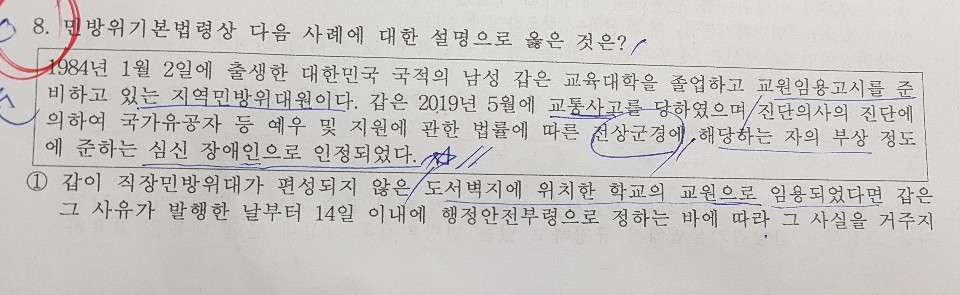 8. 민방위기본법령상 다음 사례에 대한 설명으로 옳은 것은?
1984년 1월 2일에 출생한 대한민국 국적의 남성 갑은 교육대학을 졸업하고 교원임용고시를 준
비하고 있는 지역민방위대원이다. 갑은 2019년 5월에 교통사고를 당하였으며 진단의사의 진단에
의하여 국가유공자 등 예우 및 지원에 관한 법률에 따른 전상군경에 해당하는 자의 부상 정도
에 준하는 심신 장애인으로 인정되었다.
① 갑이 직장민방위대가 편성되지 않은 도서벽지에 위치한 학교의 교원으로 임용되었다면 갑은
그 사유가 발행한 날부터 14일 이내에 행정안전부령으로 정하는 바에 따라 그 사실을 거주지